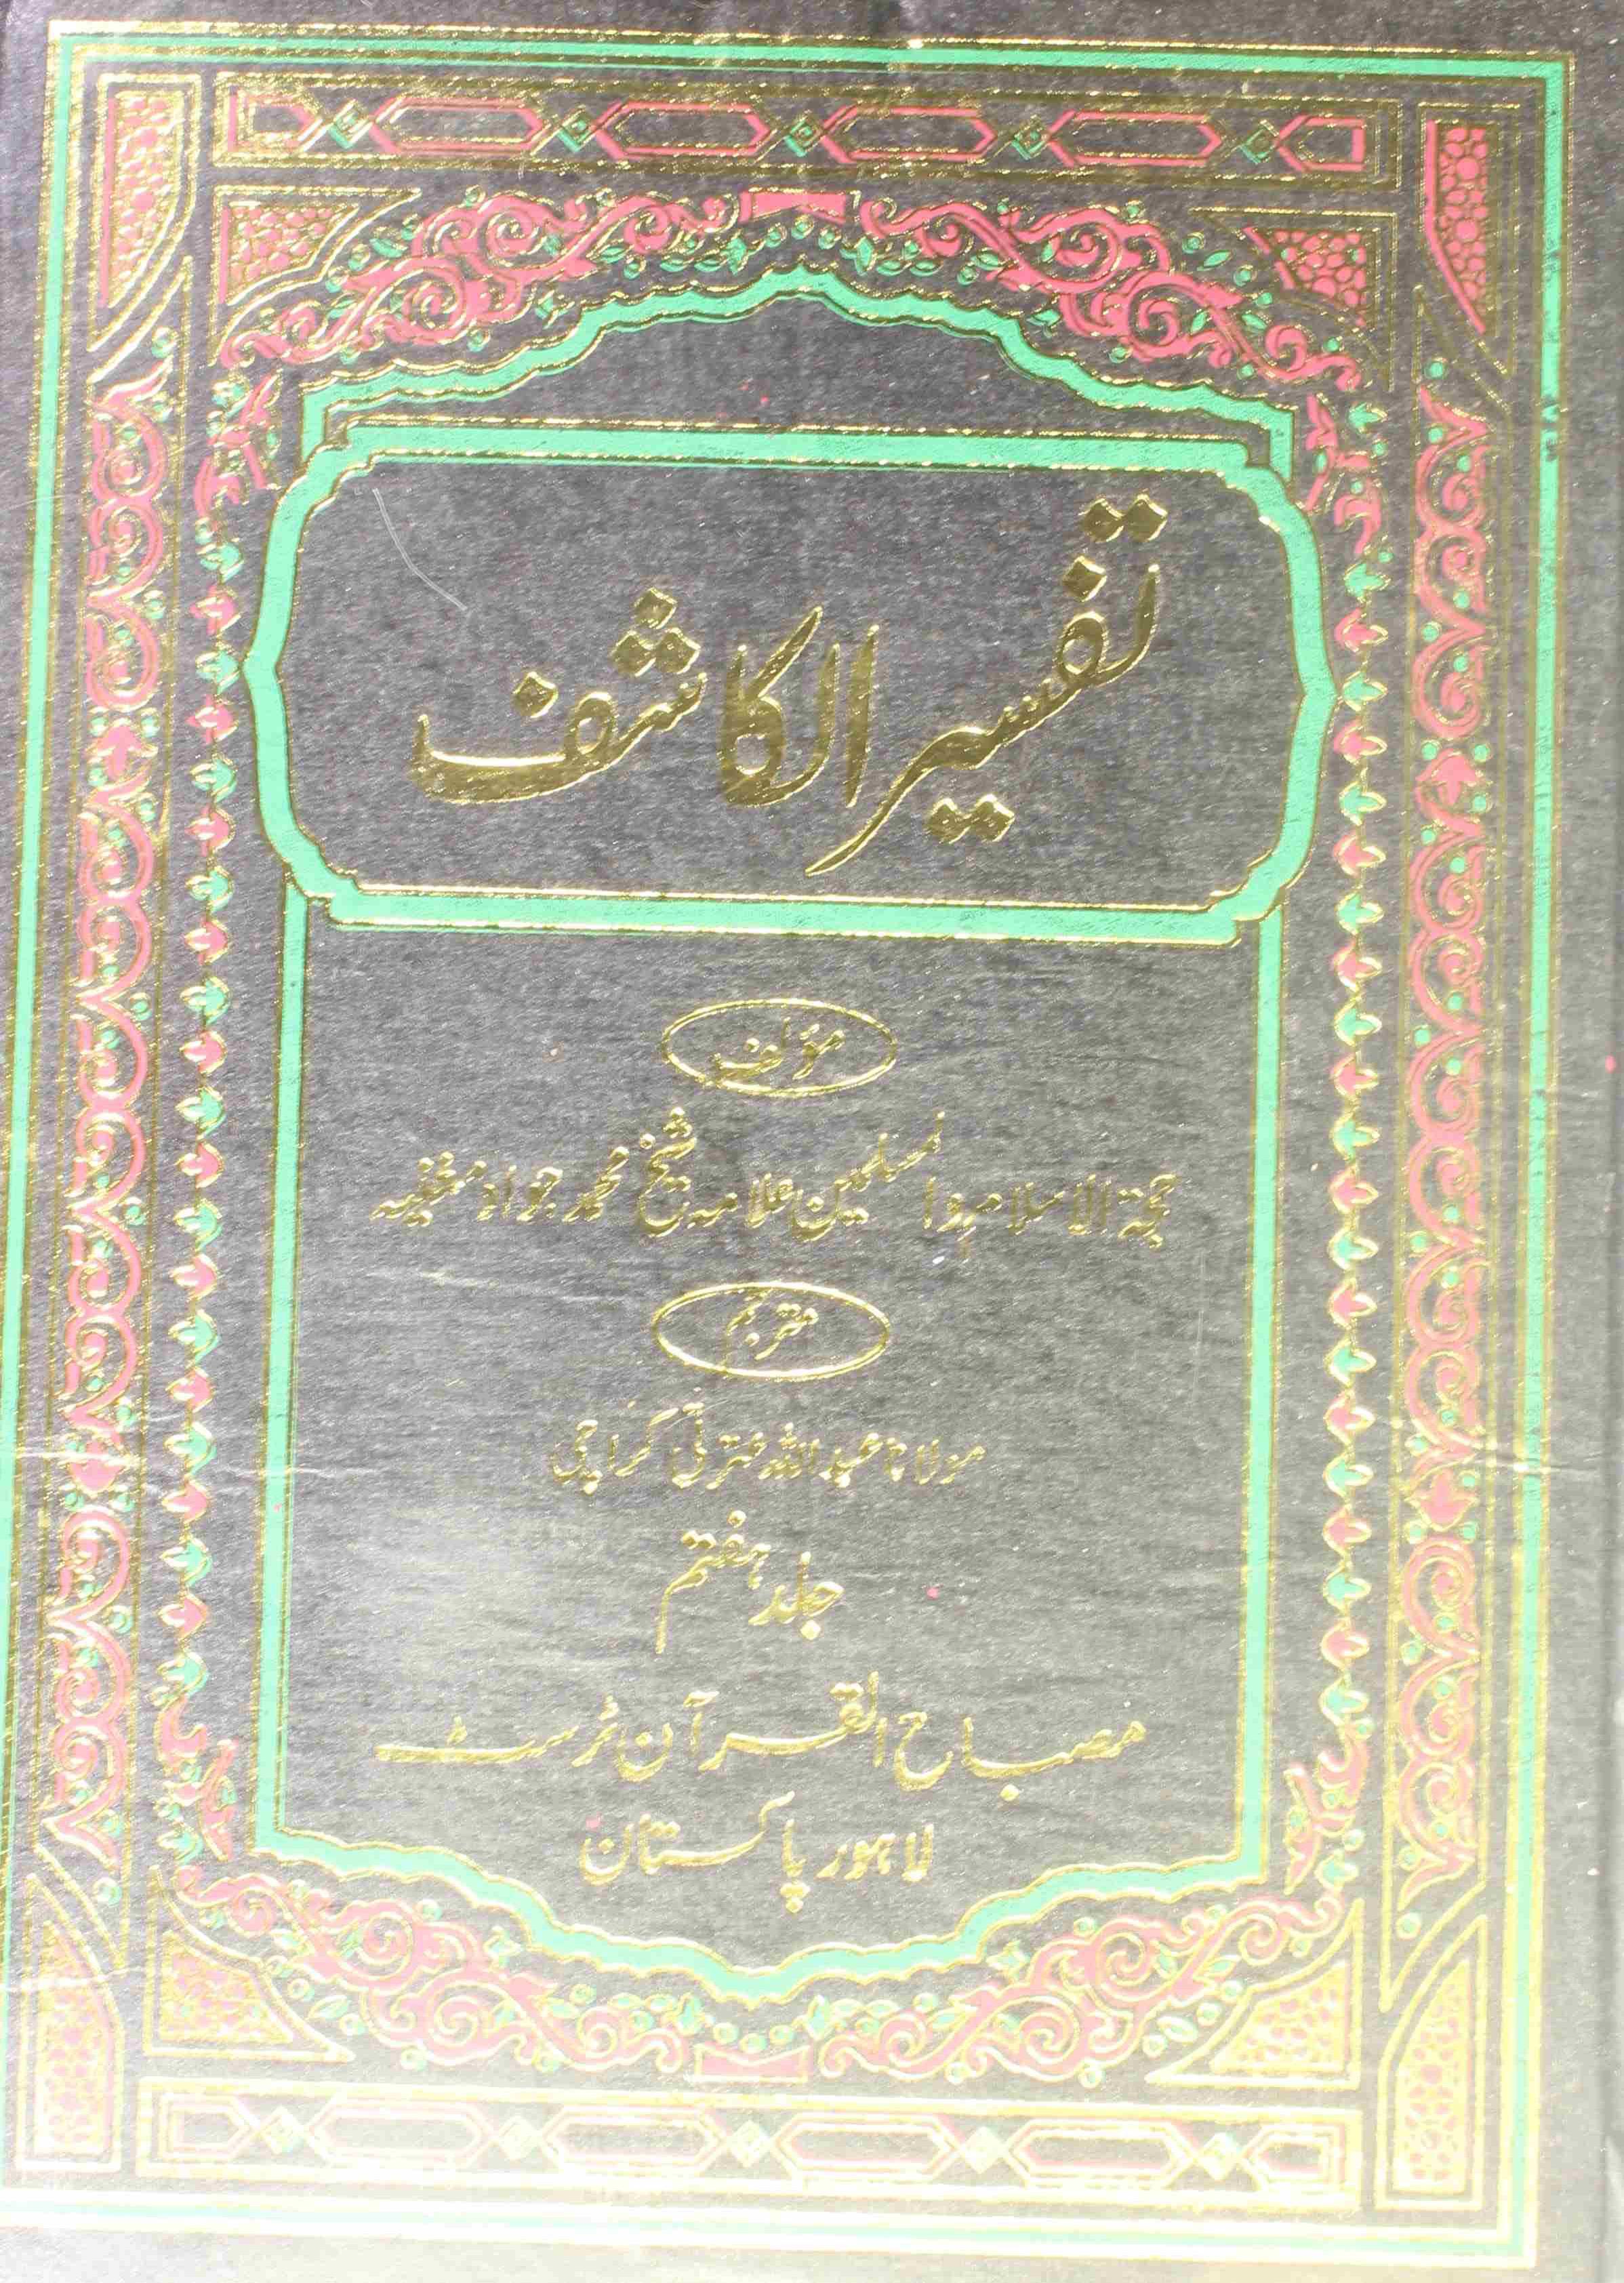 تفسیر الکاشف
مؤلف
حجة الاسلام والمسلمین علامہ شیخ محمد جواد مغنیہ
مترجم
مولانا عبداللہ عترتی کراچی
جلد ہفتم
مصباح القرآن ٹرسٹ
لاہور پاکستان